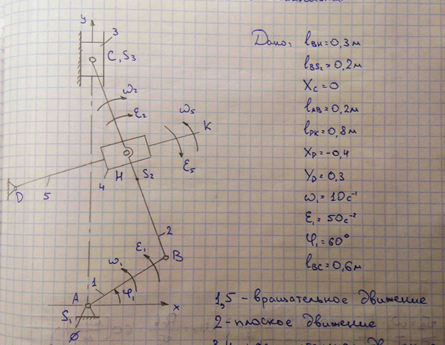 y
3
C, S₃
ω₂
ε₂
ω₅
K
ε₅
H
S₂
4
D
5
2
B
ε₁
ω₁
1
A
φ₁
x
S₁
Дано: l_BH = 0,3 м
l_BS₂ = 0,2 м
X_C = 0
l_AB = 0,2 м
l_DK = 0,8 м
X_D = -0,4
Y_D = 0,3
ω₁ = 10 c⁻¹
ε₁ = 50 c⁻²
φ₁ = 60°
l_BC = 0,6 м
1,5 - вращательное движение
2 - плоское движение